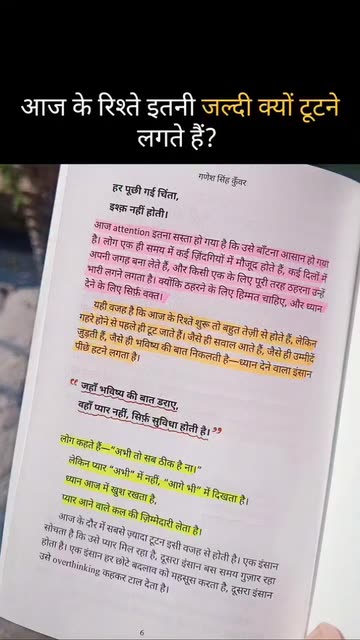 आज के रिश्ते इतनी जल्दी क्यों टूटने
लगते हैं?
गणेश सिंह कुँवर
हर पूछी गई चिंता,
इश्क़ नहीं होती।
आज attention इतना सस्ता हो गया है कि उसे बाँटना आसान हो गया
है। लोग एक ही समय में कई ज़िंदगियों में मौजूद होते हैं, कई दिलों में
अपनी जगह बना लेते हैं, और किसी एक के लिए पूरी तरह ठहरना उन्हें
भारी लगने लगता है। क्योंकि ठहरने के लिए हिम्मत चाहिए, और ध्यान
देने के लिए सिर्फ़ वक्त।
यही वजह है कि आज के रिश्ते शुरू तो बहुत तेज़ी से होते हैं, लेकिन
गहरे होने से पहले ही टूट जाते हैं। जैसे ही सवाल आते हैं, जैसे ही उम्मीदें
जुड़ती हैं, जैसे ही भविष्य की बात निकलती है—ध्यान देने वाला इंसान
पीछे हटने लगता है।
"जहाँ भविष्य की बात डराए,
वहाँ प्यार नहीं, सिर्फ़ सुविधा होती है।"
लोग कहते हैं—"अभी तो सब ठीक है ना।"
लेकिन प्यार "अभी" में नहीं, "आगे भी" में दिखता है।
ध्यान आज में खुश रखता है,
प्यार आने वाले कल की ज़िम्मेदारी लेता है।
आज के दौर में सबसे ज़्यादा टूटन इसी वजह से होती है। एक इंसान
सोचता है कि उसे प्यार मिल रहा है, दूसरा इंसान बस समय गुज़ार रहा
होता है। एक इंसान हर छोटे बदलाव को महसूस करता है, दूसरा इंसान
उसे overthinking कहकर टाल देता है।
6